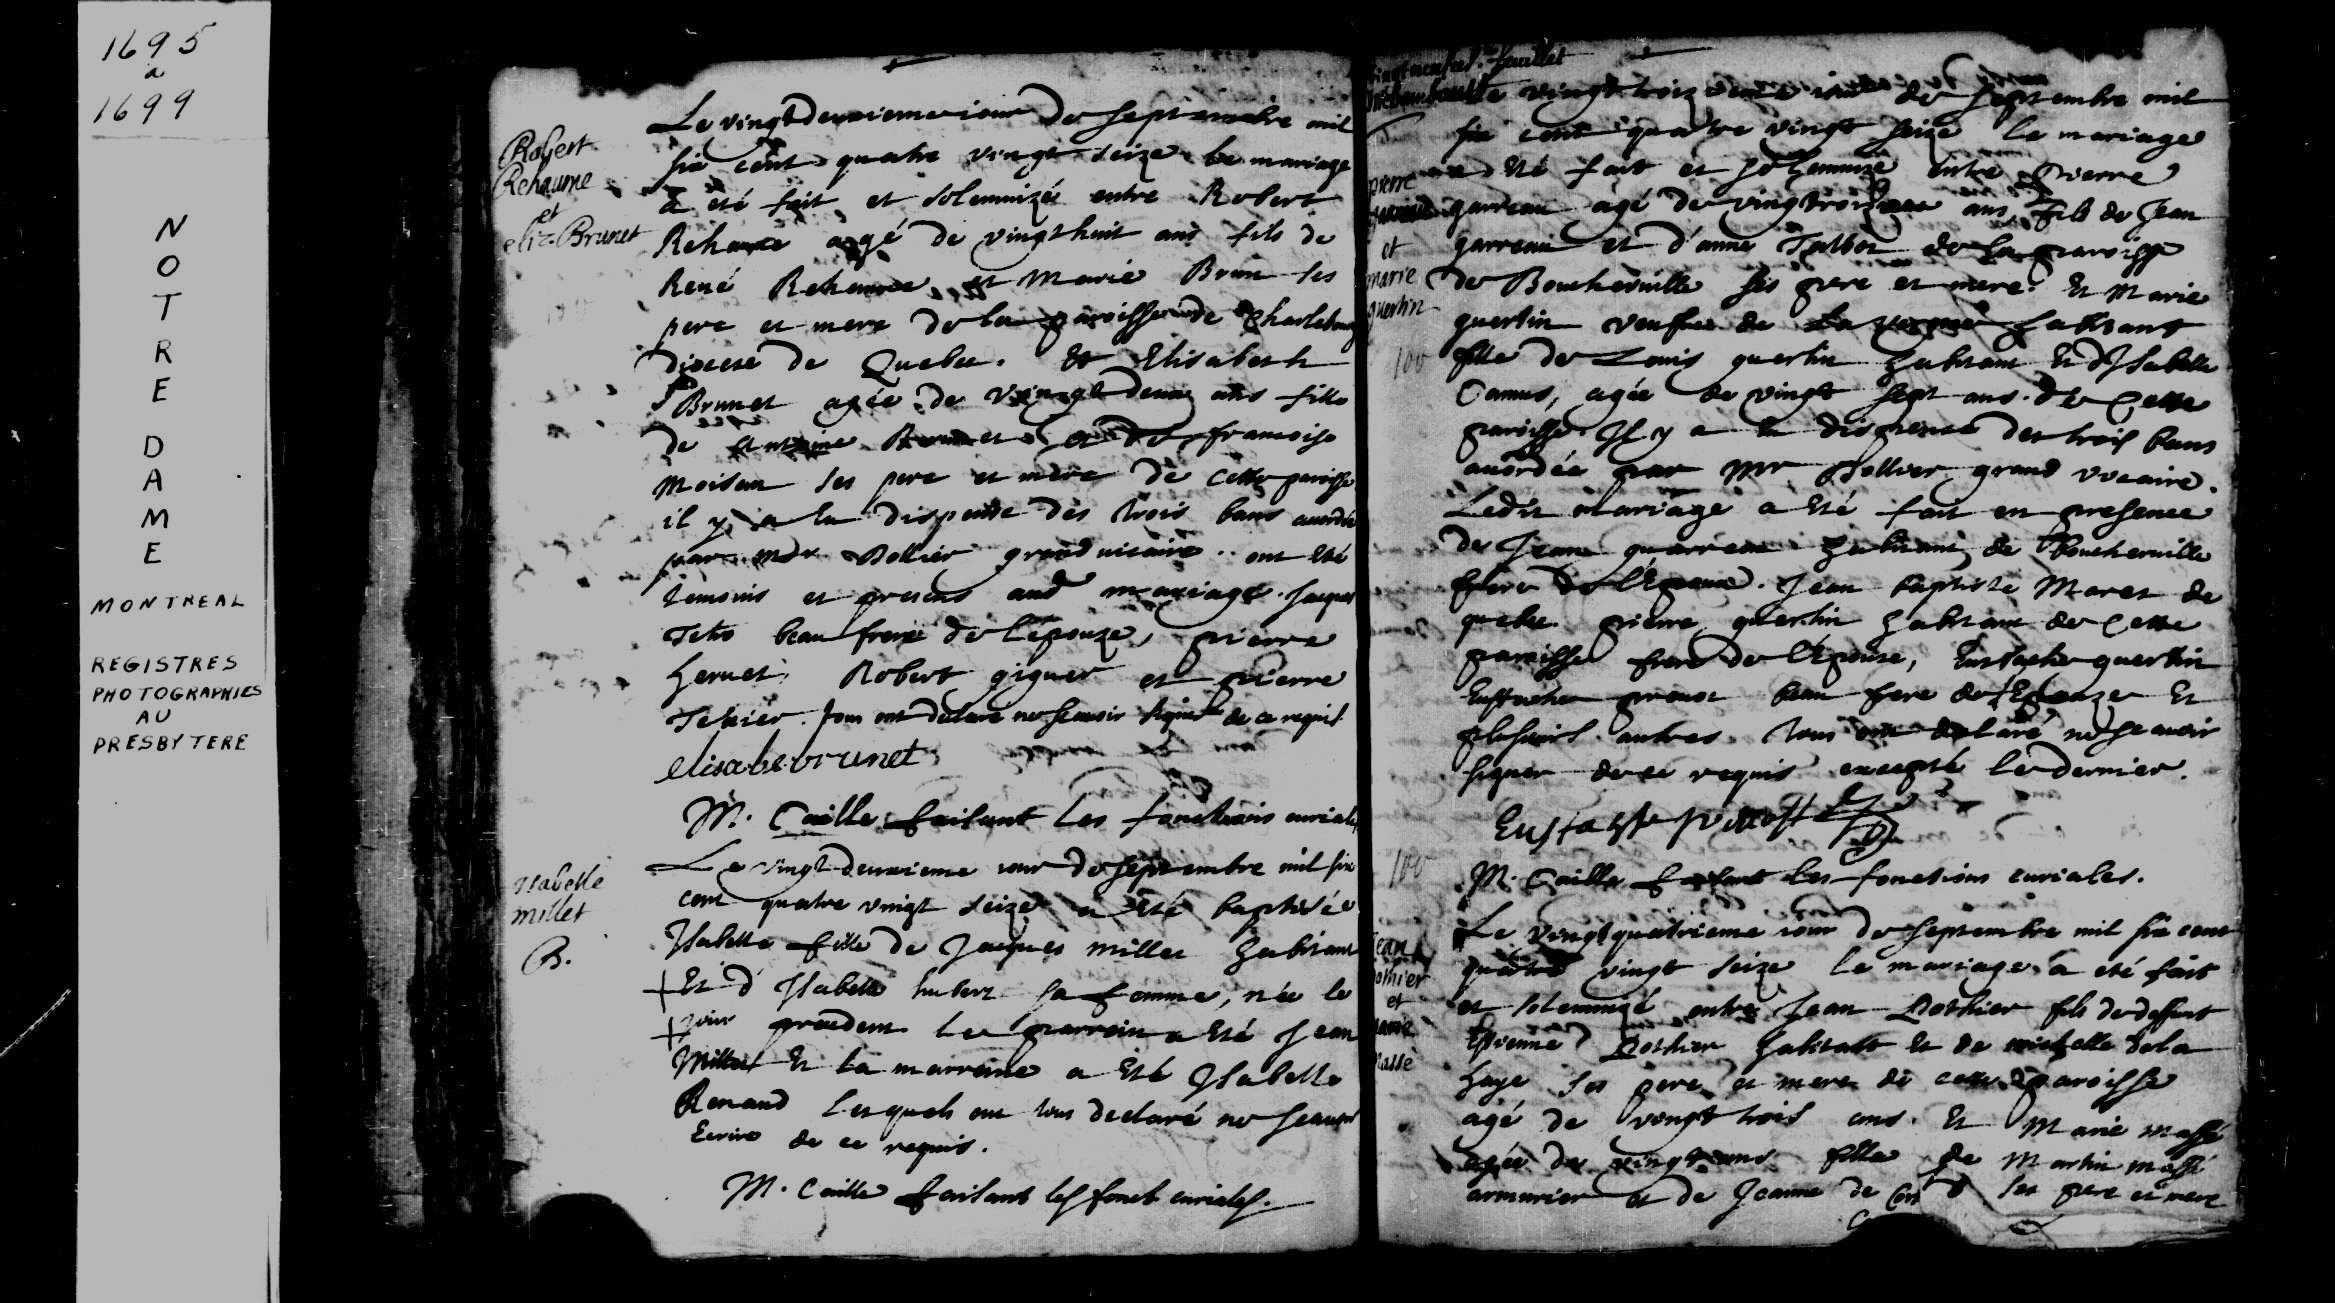 1695
a
1699
NOTRE DAME
MONTREAL
REGISTRES
PHOTOGRAPHIES
AU
PRESBYTERE
Robert
Rehaume
et
eliz. Brunet
Le vingtdeuxieme iour de septembre mil
six cent quatre vingt seize le mariage
a eté fait et solemnizé entre Robert
Rehaume agé de vingthuit ans fils de
René Rehaume et Marie Brun ses
pere et mere de la paroisse de Charlebourg
diocese de Quebec. Et Elisabeth
Brunet agée de vingt deux ans fille
de antoine Brunet et de francoise
Moisan ses pere et mere de cette paroisse
il y a eu dispense des trois bans accordée
par Mr Dollier grand vicaire. ont eté
temoins et presens aud mariage. Jacques
beau frere de l'epouze, pierre
hervet, Robert giguer et pierre
Tessier. tous ont declaré ne scauoir signer de ce requis
elisabe brunet
M. Caille faisant les fonctions curiales
Isabelle
millet
B.
Le vingt deuxieme iour de septembre mil six
cent quatre vingt seize a eté baptisée
Isabelle fille de Jacques millet habitant
Et d'Isabelle hubert sa femme, née le
iour precedent le parrain a eté Jean
Millet Et la marreine a eté Isabelle
Renaud lesquels ont tous declaré ne scauoir
Ecrire de ce requis.
M. Caille faisant les fonct curiales.
feuillet
Le vingttroizieme iour de septembre mil
six cent quatre vingt seize le mariage
a eté fait et solemnizé entre pierre
garreau agé de vingtrois ans, fils de Jean
garreau et d'anne Talbot de la paroisse
de Boucherville ses pere et mere. Et Marie
guertin veufue de habitant
fille de Louis guertin habitant Et d'Isabelle
Camus, agée de vingt sept ans. de Cette
paroisse Il y a eu dispense des trois bans
accordée par Mr Dollier grand vicaire.
Ledit mariage a eté fait en presence
de Jean garreau habitant de boucherville
frere de l'Epoux. Jean baptiste Maret de
quebec pierre guertin habitant de Cette
paroisse frere de l'Epouse, Eustache guertin
Eustache prouost beau frere de l'Epouze Et
plusieurs autres tous ont declaré ne scauoir
signer de ce requis excepté le dernier.
pierre
garreau
et
marie
guertin
100
Eustache prevost
M. Caille faisant les fonctions curiales.
100
Jean
pothier
et
marie
massé
Le vingtquatrieme iour de septembre mil six cent
quatre vingt seize le mariage a eté fait
et solemnizé entre Jean Pothier fils de deffunt
Etienne Pothier habitant et de michelle de la
haye ses pere et mere de cette paroisse
agé de vingt trois ans. Et Marie massé
agée de vingt ans fille de Martin massé
armurier et de Jeanne de ses pere et mere